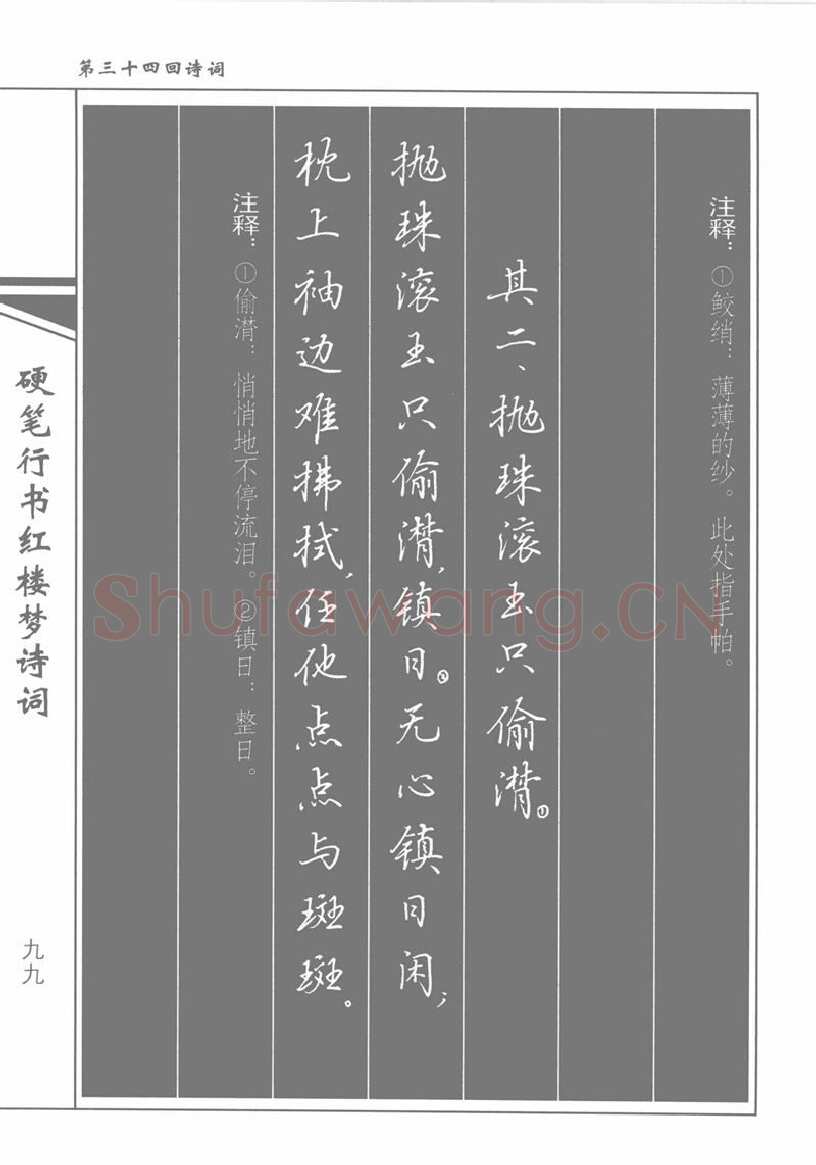 第三十四回诗词
注释：①鲛绡：薄薄的纱。此处指手帕。
其二、抛珠滚玉只偷潸①。
抛珠滚玉只偷潸，镇日②。无心镇日闲；
枕上袖边难拂拭，任他点点与斑斑。
注释：①偷潸：悄悄地不停流泪。②镇日：整日。
硬笔行书红楼梦诗词
九九
Shufawang.CN